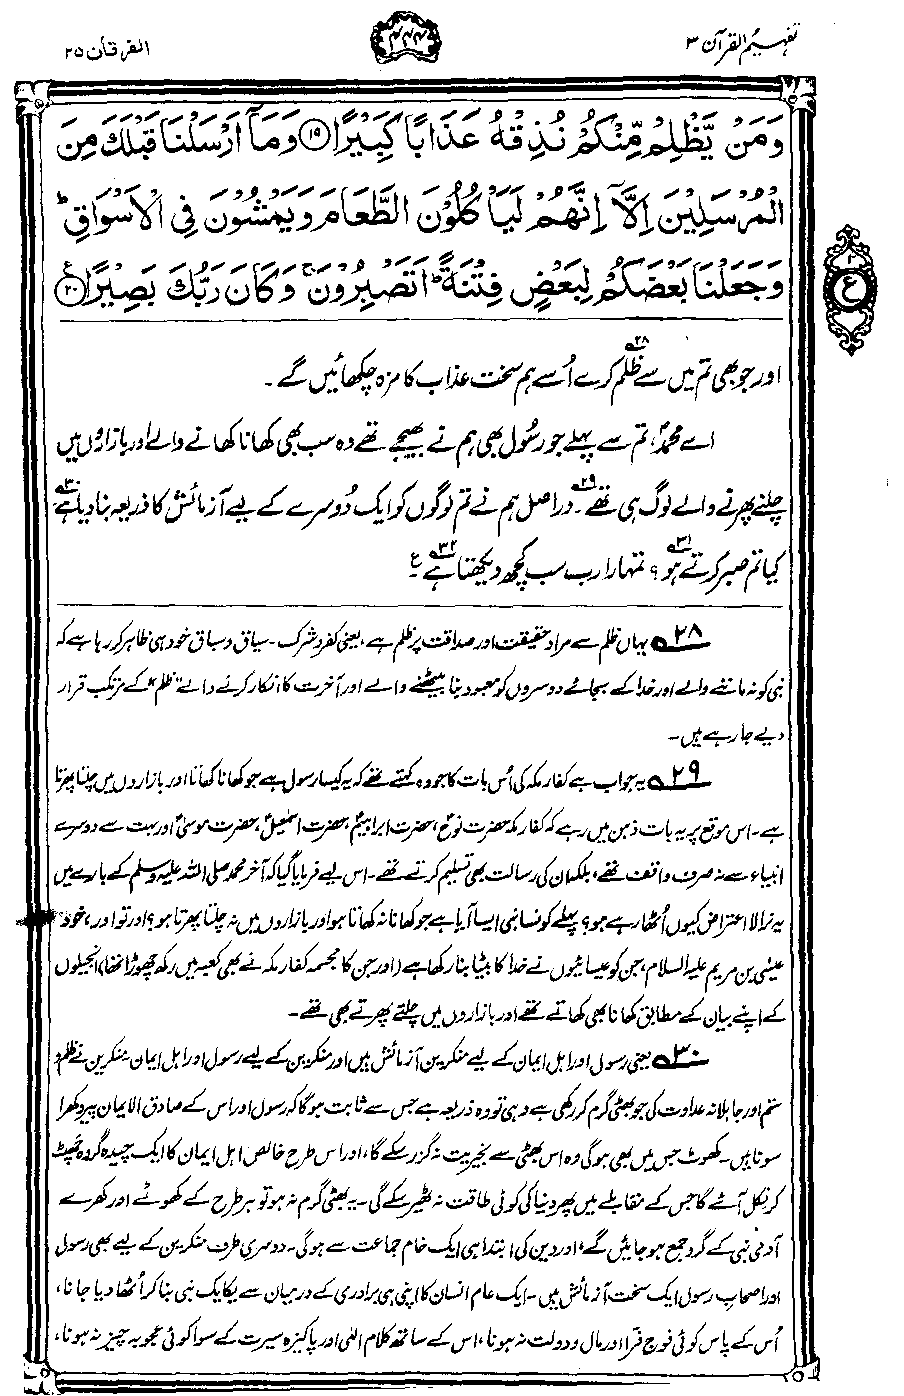 تفہیم القرآن ۳
۴۴۴
الفرقان ۲۵
وَمَنْ يَّظْلِمْ مِّنْكُمْ نُذِقْهُ عَذَابًا كَبِيْرًا ﴿۱۹﴾ وَمَآ اَرْسَلْنَا قَبْلَكَ مِنَ
الْمُرْسَلِيْنَ اِلَّآ اِنَّهُمْ لَيَاْكُلُوْنَ الطَّعَامَ وَيَمْشُوْنَ فِي الْاَسْوَاقِ ؕ
وَجَعَلْنَا بَعْضَكُمْ لِبَعْضٍ فِتْنَةً ؕ اَتَصْبِرُوْنَ ۚ وَكَانَ رَبُّكَ بَصِيْرًا ﴿۲۰﴾ ع
۲
ع
اور جو بھی تم میں سے ظلم۲۸ کرے اُسے ہم سخت عذاب کا مزہ چکھائیں گے۔
اے محمدؐ، تم سے پہلے جو رسُول بھی ہم نے بھیجے تھے وہ سب بھی کھانا کھانے والے اور بازاروں میں
چلنے پھرنے والے لوگ ہی تھے۲۹۔ دراصل ہم نے تم لوگوں کو ایک دُوسرے کے لیے آزمائش کا ذریعہ بنا دیا ہے۳۰
کیا تم صبر کرتے ہو۳۱؟ تمہارا رب سب کچھ دیکھتا ہے۳۲۔ ع
۲۸ یہاں ظلم سے مراد حقیقت اور صداقت پر ظلم ہے، یعنی کفر و شرک۔ سیاق و سباق خود ہی ظاہر کر رہا ہے کہ
نبی کو نہ ماننے والے اور خدا کے بجائے دوسروں کو معبود بنا بیٹھنے والے اور آخرت کا انکار کرنے والے "ظلم" کے مرتکب قرار
دیے جا رہے ہیں۔
۲۹ یہ جواب ہے کفار مکہ کی اُس بات کا جو وہ کہتے تھے کہ یہ کیسا رسول ہے جو کھانا کھاتا اور بازاروں میں چلتا پھرتا
ہے۔ اس موقع پر یہ بات ذہن میں رہے کہ کفار مکہ حضرت نوحؑ، حضرت ابراہیمؑ، حضرت اسمٰعیلؑ، حضرت موسیٰؑ اور بہت سے دوسرے
انبیاء سے نہ صرف واقف تھے، بلکہ ان کی رسالت بھی تسلیم کرتے تھے۔ اس لیے فرمایا گیا کہ آخر محمد صلی اللہ علیہ وسلم کے بارے میں
یہ نرالا اعتراض کیوں اُٹھا رہے ہو؟ پہلے کونسا نبی ایسا آیا ہے جو کھانا نہ کھاتا ہو اور بازاروں میں نہ چلتا پھرتا ہو؟ اور تو اور، خود
عیسٰی بن مریم علیہ السلام، جن کو عیسائیوں نے خدا کا بیٹا بنا رکھا ہے (اور جن کا مجسمہ کفار مکہ نے بھی کعبہ میں رکھ چھوڑا تھا) انجیلوں
کے اپنے بیان کے مطابق کھانا بھی کھاتے تھے اور بازاروں میں چلتے پھرتے بھی تھے۔
۳۰ یعنی رسول اور اہل ایمان کے لیے منکرین آزمائش ہیں اور منکرین کے لیے رسول اور اہل ایمان۔ منکرین نے ظلم و
ستم اور جاہلانہ عداوت کی جو بھٹی گرم کر رکھی ہے وہی تو وہ ذریعہ ہے جس سے ثابت ہوگا کہ رسول اور اس کے صادق الایمان پیرو کھرا
سونا ہیں۔ کھوٹ جس میں بھی ہوگی وہ اس بھٹی سے بخیریت نہ گزر سکے گا، اور اس طرح خالص اہل ایمان کا ایک چیدہ گروہ چھٹ
کر نکل آئے گا جس کے مقابلے میں پھر دنیا کی کوئی طاقت نہ ٹھیر سکے گی۔ یہ بھٹی گرم نہ ہو تو ہر طرح کے کھوٹے اور کھرے
آدمی نبی کے گرد جمع ہو جائیں گے، اور دین کی ابتدا ہی ایک خام جماعت سے ہوگی۔ دوسری طرف منکرین کے لیے بھی رسول
اور اصحابِ رسول ایک سخت آزمائش ہیں۔ ایک عام انسان کا اپنی ہی برادری کے درمیان سے یکایک نبی بنا کر اُٹھا دیا جانا،
اُس کے پاس کوئی فوج فرا اور مال و دولت نہ ہونا، اس کے ساتھ کلام الٰہی اور پاکیزہ سیرت کے سوا کوئی عجوبہ چیز نہ ہونا،